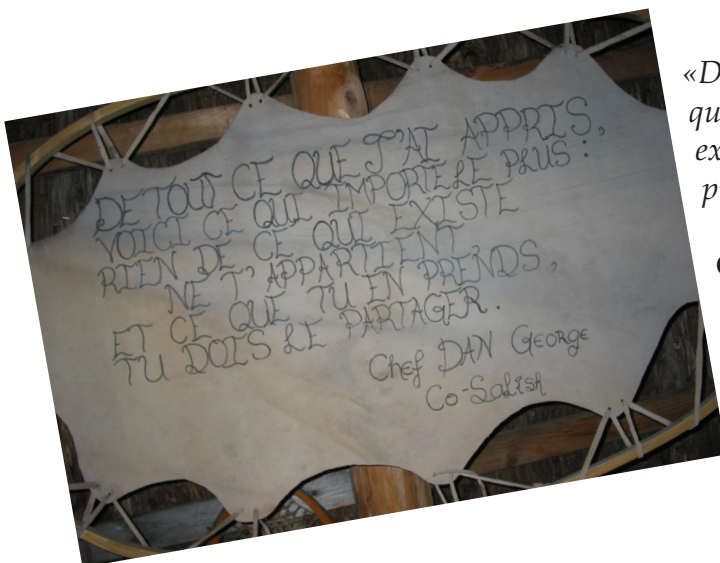 DE TOUT CE QUE J'AI APPRIS,
VOICI CE QUI IMPORTE LE PLUS :
RIEN DE CE QUI EXISTE
NE T'APPARTIENT
ET CE QUE TU EN PRENDS,
TU DOIS LE PARTAGER.
Chef DAN GEORGE
Co-Salish
«D
qu
ex
p